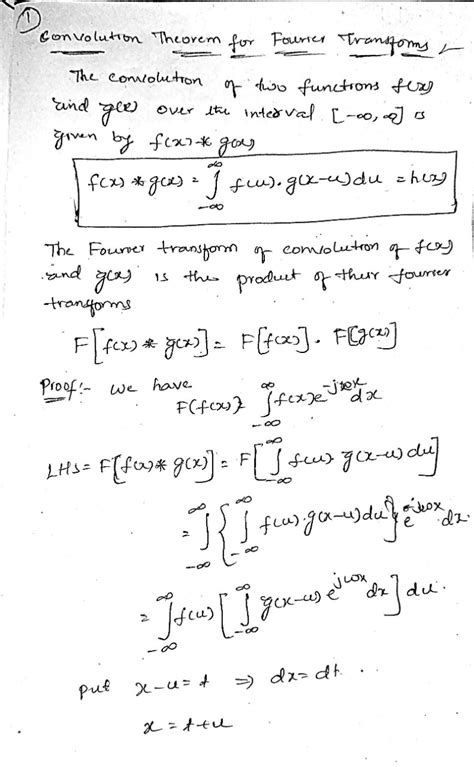 ①
Convolution Theorem for Fourier Transforms
The convolution of two functions f(x)
and g(x) over the interval [-∞, ∞] is
given by f(x) * g(x)
f(x) * g(x) = ∫_{-∞}^{∞} f(u). g(x-u) du = h(x)
The Fourier transform of convolution of f(x)
and g(x) is the product of their fourier
transforms
F[f(x) * g(x)] = F[f(x)]. F[g(x)]
Proof:- we have
F(f(x)) = ∫_{-∞}^{∞} f(x) e^{-jωx} dx
LHS = F[f(x) * g(x)] = F[∫_{-∞}^{∞} f(u) g(x-u) du]
= ∫_{-∞}^{∞} {∫_{-∞}^{∞} f(u). g(x-u) du} e^{-jωx} dx.
= ∫_{-∞}^{∞} f(u) [∫_{-∞}^{∞} g(x-u) e^{jωx} dx] du.
put x-u = t ⇒ dx = dt . .
x = t+u